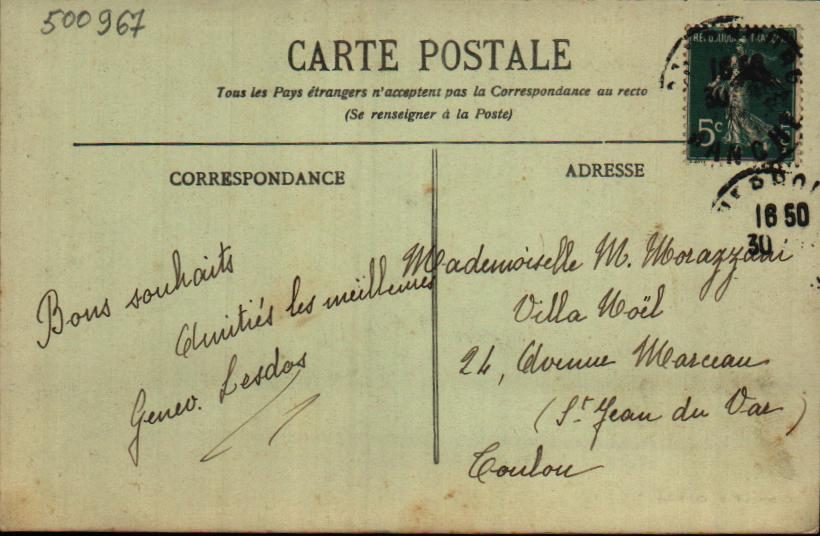 500967
CARTE POSTALE
Tous les Pays étrangers n'acceptent pas la Correspondance au recto
(Se renseigner à la Poste)
REPUBLIQUE FRANÇAISE
5c
16 50
30
MANCHE
16 50
30
CORRESPONDANCE
Bons souhaits
Amitiés les meilleures
Genev. Lesdos
ADRESSE
Mademoiselle M. Morazzani
Villa Noël
24, Avenue Marceau
(St Jean du Var)
Toulon